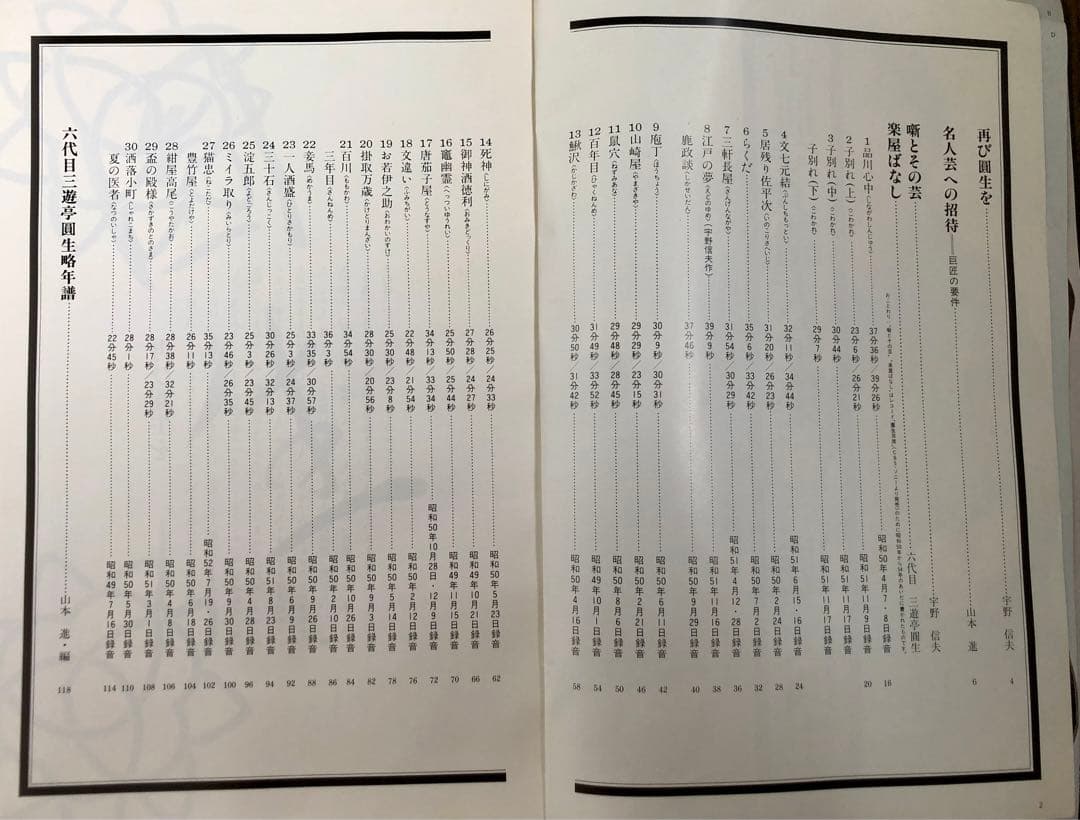 再び圓生を 宇野 信夫 4
名人芸への招待――巨匠の要件 山本 進 6
噺とその芸 宇野 信夫
楽屋ばなし 六代目 三遊亭圓生
1 品川心中(しながわしんじゅう) 37分36秒/39分26秒 昭和50年4月7・8日録音 16
2 子別れ(上)(こわかれ) 23分6秒 昭和51年11月9日録音 20
3 子別れ(中)(こわかれ) 26分21秒 昭和51年11月17日録音
子別れ(下)(こわかれ) 29分7秒 昭和51年11月17日録音
4 文七元結(ぶんしちもっとい) 32分11秒/34分44秒 昭和51年6月15・16日録音 24
5 居残り佐平次(いのこりさへいじ) 31分20秒/26分23秒 昭和50年2月24日録音 28
6 らくだ 35分6秒/33分42秒 昭和50年10月17日録音 32
7 三軒長屋(さんげんながや) 31分54秒/30分29秒 昭和51年4月12・28日録音 36
8 江戸の夢(えどのゆめ)(宇野信夫作) 39分9秒 昭和51年11月16日録音 38
鹿政談(しかせいだん) 37分46秒 昭和50年9月29日録音 40
9 庖丁(ほうちょう) 30分9秒/30分31秒 昭和50年6月11日録音 42
10 山崎屋(やまざきや) 29分29秒/23分15秒 録音 46
11 鼠穴(ねずみあな) 29分48秒/28分45秒 録音 50
12 百年目(ひゃくねんめ) 31分49秒/33分52秒 昭和49年10月1日録音 54
13 鰍沢(かじかざわ) 30分50秒/31分42秒 昭和50年4月16日録音 58
2
14 死神(しにがみ) 26分25秒/24分33秒 昭和50年5月23日録音 62
15 御神酒徳利(おみきどっくり) 27分28秒/24分27秒 昭和49年10月21日録音 66
16 竈幽霊(へっついゆうれい) 25分50秒/25分44秒 昭和49年11月15日録音 70
17 唐茄子屋(とうなすや) 34分13秒/33分34秒 昭和50年10月28日・12月9日録音 72
18 文違い(ふみちがい) 22分48秒/21分54秒 昭和50年2月12日録音 76
19 お若伊之助(おわかいのすけ) 25分30秒/23分8秒 昭和50年5月14日録音 78
20 掛取万歳(かけとりまんざい) 28分30秒/20分56秒 昭和50年9月3日録音 82
21 百川(ももかわ) 34分54秒 昭和50年10月2日録音 84
三年目(さんねんめ) 36分3秒 昭和50年2月10日録音 86
22 妾馬(めかうま) 33分35秒/30分57秒 昭和50年9月8日録音 88
23 一人酒盛(ひとりさかもり) 25分3秒/24分37秒 昭和50年6月9日録音 92
24 三十石(さんじっこく) 30分26秒/32分13秒 昭和51年8月23日録音 94
25 淀五郎(よどごろう) 25分3秒/23分45秒 昭和50年4月4日録音 96
26 ミイラ取り(みいらとり) 23分46秒/26分35秒 昭和50年9月30日録音 100
27 猫忠(ねこただ) 35分13秒 昭和52年7月19・26日録音 102
豊竹屋(とよたけや) 26分11秒 昭和50年6月18日録音 104
28 紺屋高尾(こうやたかお) 28分38秒/32分21秒 昭和50年4月8日録音 106
29 盃の殿様(さかずきのとのさま) 28分17秒/23分29秒 昭和51年3月1日録音 108
30 洒落小町(しゃれこまち) 28分1秒 昭和50年5月30日録音 110
夏の医者(なつのいしゃ) 22分45秒 昭和49年7月16日録音 114
六代目三遊亭圓生略年譜 山本 進・編 118